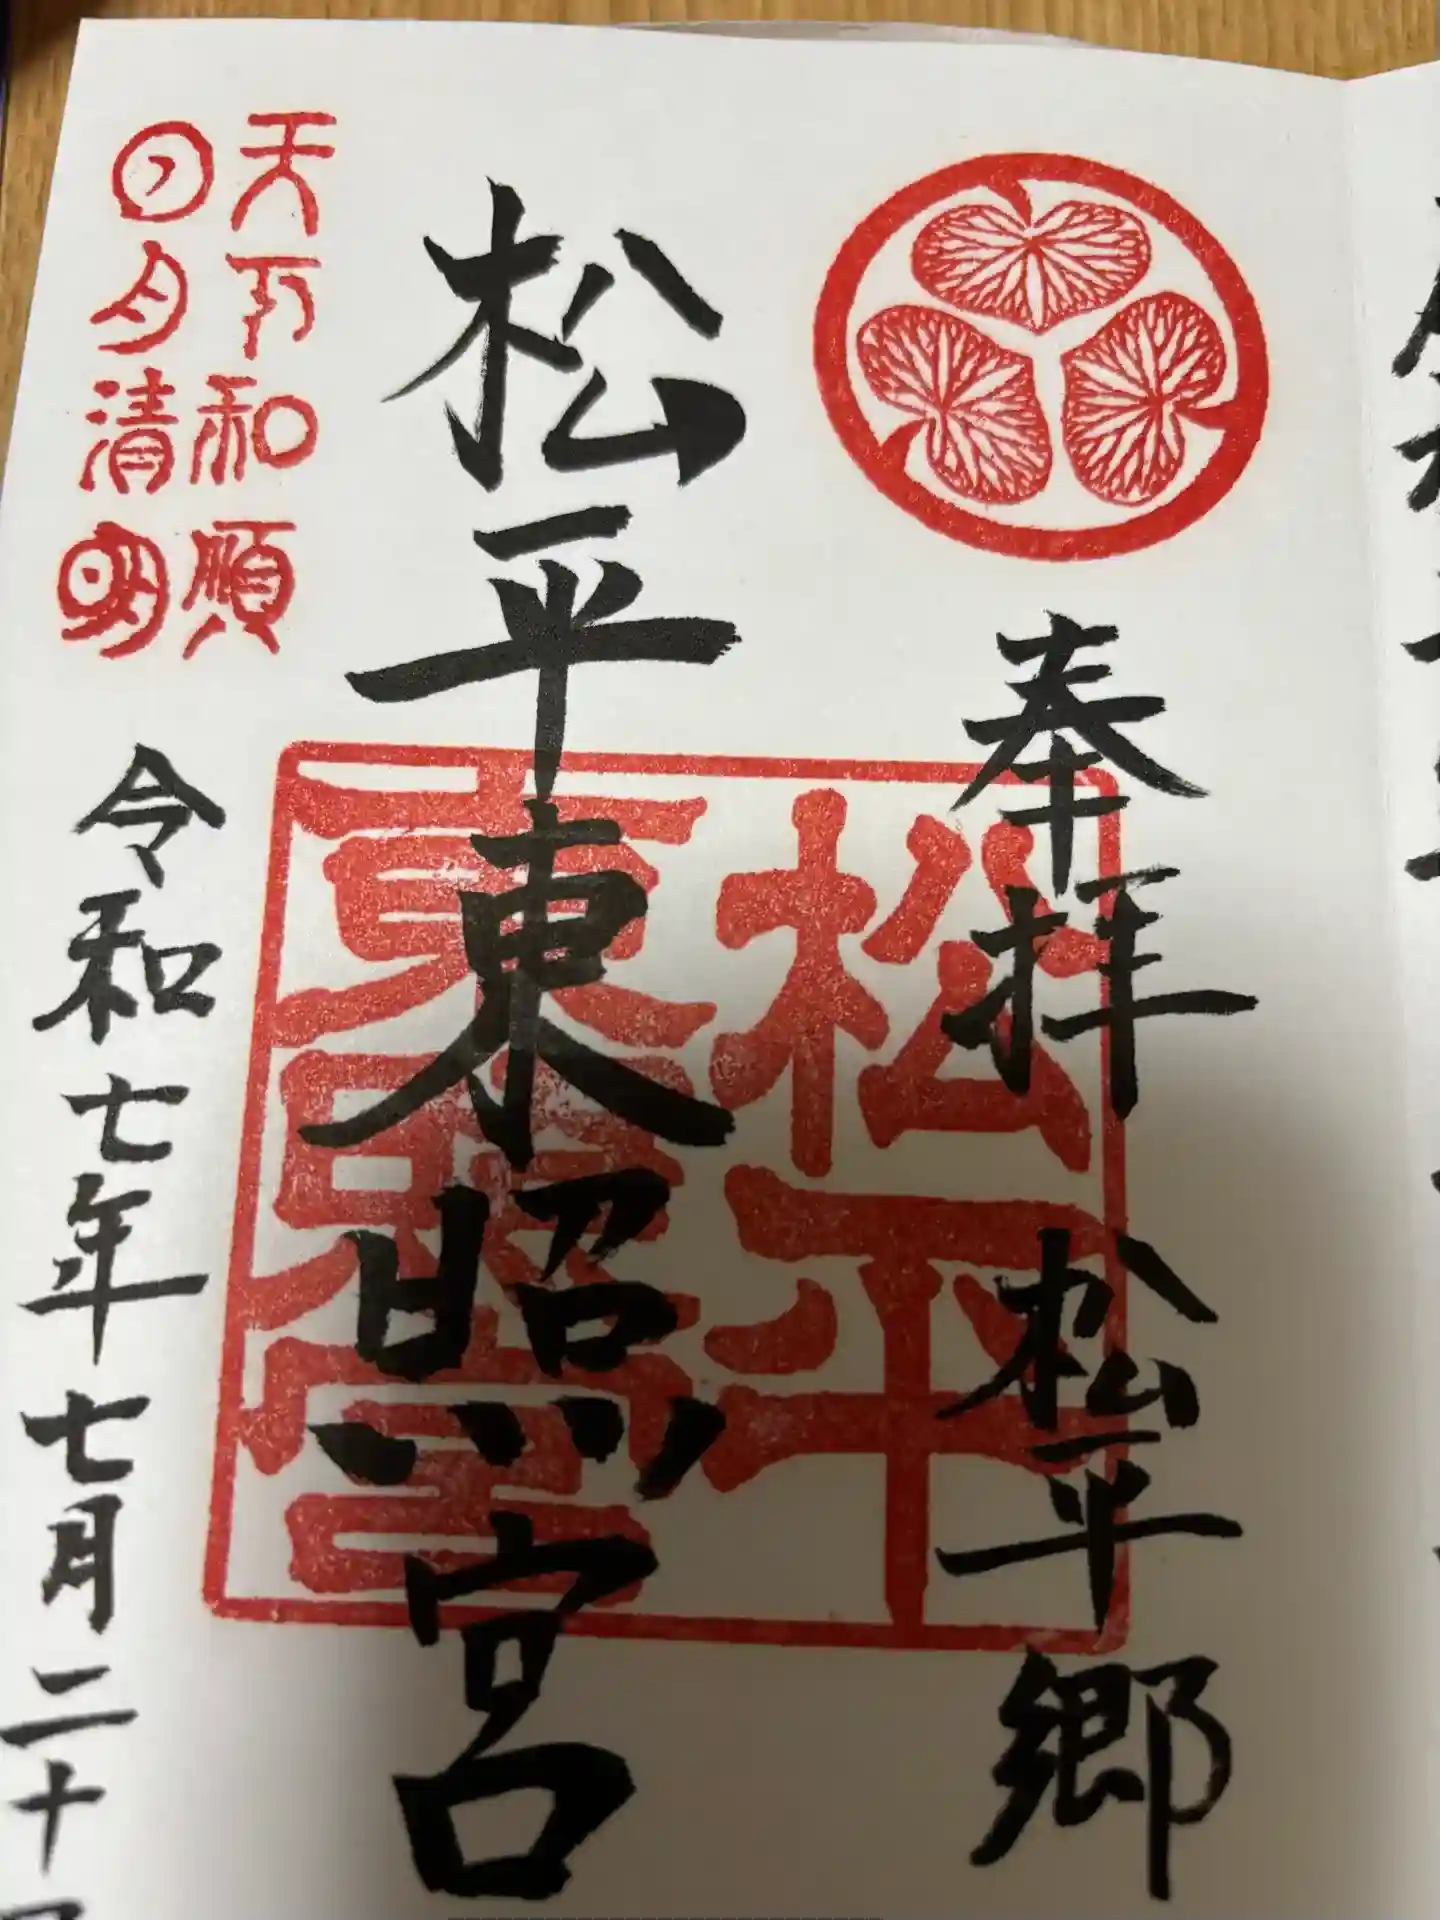 奉拝 松平郷
松平東照宮
松平
東照宮
天下和順
日月清明
令和七年七月二十